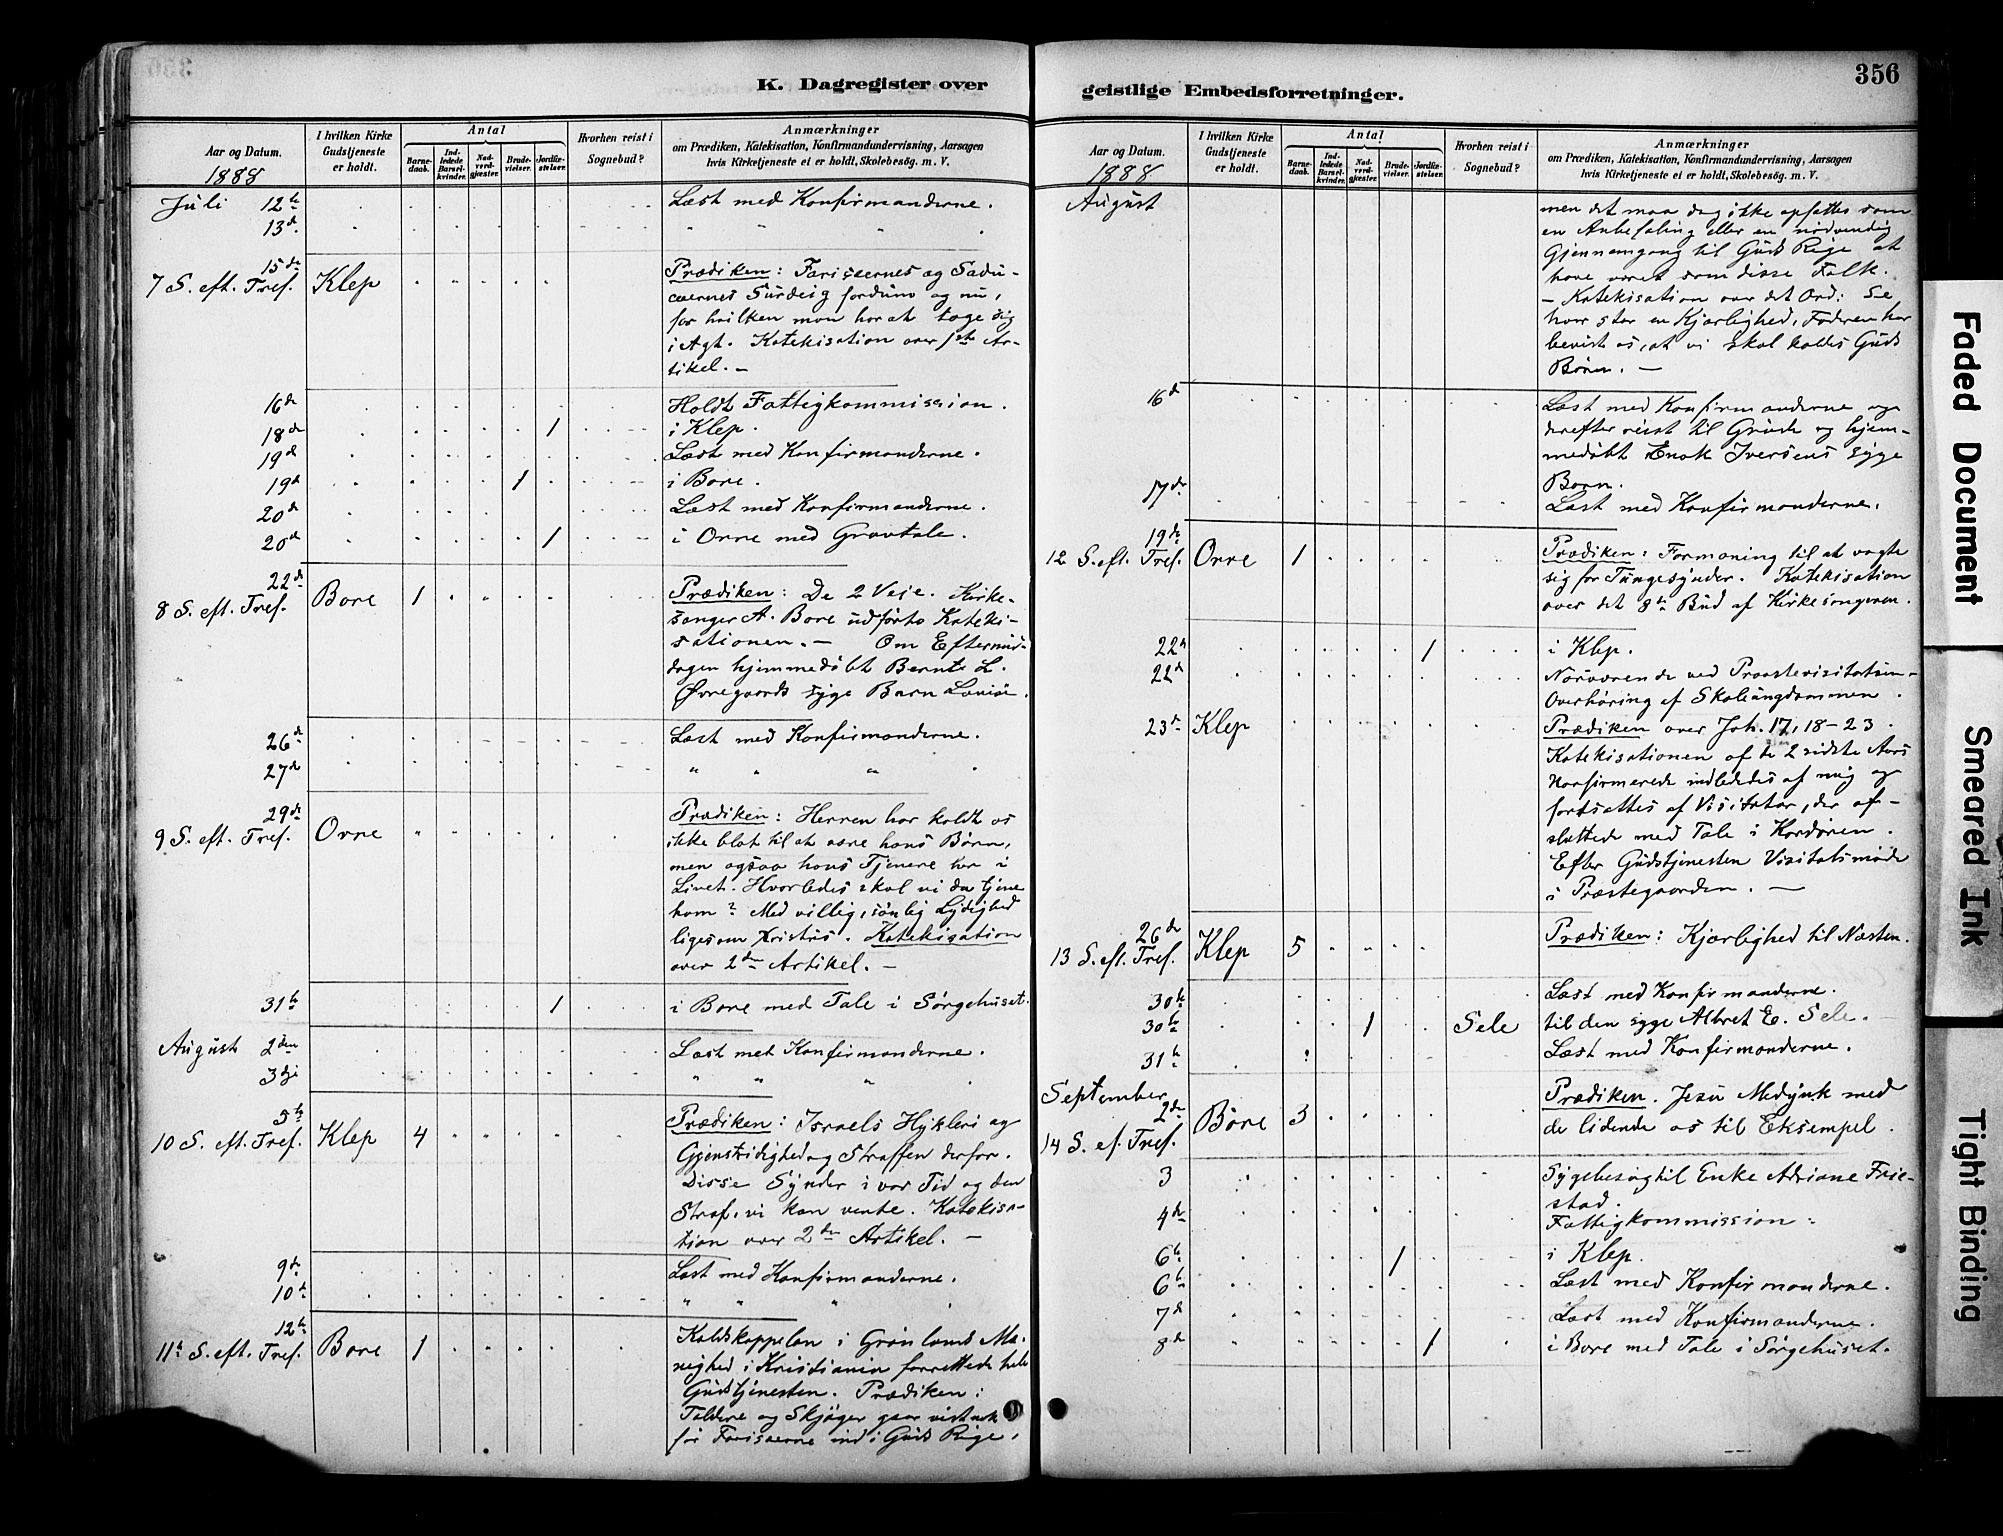 K. Dagregister over
Aar og Datum.
I hvilken Kirke Gudstjeneste er holdt.
Antal
Barne-daab.
Ind-ledede Barsel-kvinder.
Nad-verd-gjæster.
Brude-vielser.
Jordfæ-stelser.
Hvorhen reist i Sognebud?
Anmærkninger
om Prædiken, Katekisation, Konfirmandundervisning, Aarsagen
hvis Kirketjeneste ei er holdt, Skolebesøg. m. V.
1888
Juli 12te Læst med Konfirmanderne.
13de " " "
15de
7 S. eft. Tref. Klep Prædiken: Farisæernes og Sadu-
cæernes Surdeig fordum og nu,
for hvilken man har at tage sig
i Agt. Katekisation over 1ste Ar-
tikel. —
16de Holdt Fattigkommission.
18de 1 i Klep.
19de Læst med Konfirmanderne.
19de 1 i Bore.
20de Læst med Konfirmanderne.
20de 1 i Orre med Gravtale.
22de
8 S. eft. Tref. Bore 1 Prædiken: De 2 Veie. Kirke-
sanger A. Bore udførte Kateki-
sationen. — Om Eftermid-
dagen hjemmedøbt Bernt L.
Øvregaards syge Barn Lovise.
26de Læst med Konfirmanderne.
27de " " "
29de
9 S. eft. Tref. Orre Prædiken: Herren har kaldt os
ikke blot til at være hans Børn,
men ogsaa hans Tjenere her i
Livet. Hvorledes skal vi da tjene
ham? Med villig, sønlig Lydighed
ligesom Kristus. Katekisation
over 2den Artikel. —
31te 1 i Bore med Tale i Sørgehuset.
August 2den Læst met Konfirmanderne.
3dje " " "
5te
10 S. eft. Tref. Klep 4 Prædiken: Israels Hykleri og
Gjenstridighed og Straffen derfor.
Disse Synder i vor Tid og den
Straf, vi kan vente. Katekisa-
tion over 2den Artikel. —
9de Læst med Konfirmanderne.
10de " " "
12te
11te S. eft. Tref. Bore 1 Kaldskappelan i Grønlands Me-
nighed i Kristiania forrettede hele
Gudstjenesten. Prædiken:
Toldere og Skjøger gaar vist nok
før Farisæerne ind i Guds Rige,
geistlige Embedsforretninger.
356
Aar og Datum.
I hvilken Kirke Gudstjeneste er holdt.
Antal
Barne-daab.
Ind-ledede Barsel-kvinder.
Nad-verd-gjæster.
Brude-vielser.
Jordfæ-stelser.
Hvorhen reist i Sognebud?
Anmærkninger
om Prædiken, Katekisation, Konfirmandundervisning, Aarsagen
hvis Kirketjeneste ei er holdt, Skolebesøg. m. V.
1888
August men det maa dog ikke opfattes som
en Anbefaling eller en nødvendig
Gjennemgang til Guds Rige at
have været som disse Folk.
— Katekisation over det Ord: Se
hvor stor en Kjærlighed, Faderen har
bevist os, at vi skal kaldes Guds
Børn. —
16de Læst med Konfirmanderne og
derefter reist til Grude og hjem-
medøbt Enok Iversens syge
Barn.
17de Læst med Konfirmanderne.
19de
12 S. eft. Tref. Orre 1 Prædiken: Formaning til at vogte
sig for Tungesynder. Katekisation
over det 8te Bud af Kirkesangeren.
22de 1 i Klep.
22de Nærværende ved Provstevisitatsen-
Overhøring af Skoleungdommen.
23de Klep Prædiken over Joh. 17, 18-23.
Katekisationen af de 2 sidste Aars
Konfirmerede indlededes af mig og
fortsattes af Visitator, der af-
sluttede med Tale i Kordøren.
Efter Gudstjenesten Visitatsmøde
i Præstegaarden. —
26de
13 S. eft. Tref. Klep 5 Prædiken: Kjærlighed til Næsten.
30te Læst med Konfirmanderne.
30te 1 Sele til den syge Albret E. Sele.
31te Læst med Konfirmanderne.
September
2den
14 S. ef. Tref. Bore 3 Prædiken. Jesu Medynk med
de lidende os til Eksempel.
3 Sygebesøg til Enke Adriane Frie-
stad.
4de Fattigkommission:
6te 1 i Klep.
6te Læst med Konfirmanderne.
7de Læst med Konfirmanderne.
8de 1 i Bore med Tale i Sørgehuset.
Faded Document
Smeared Ink
Tight Binding